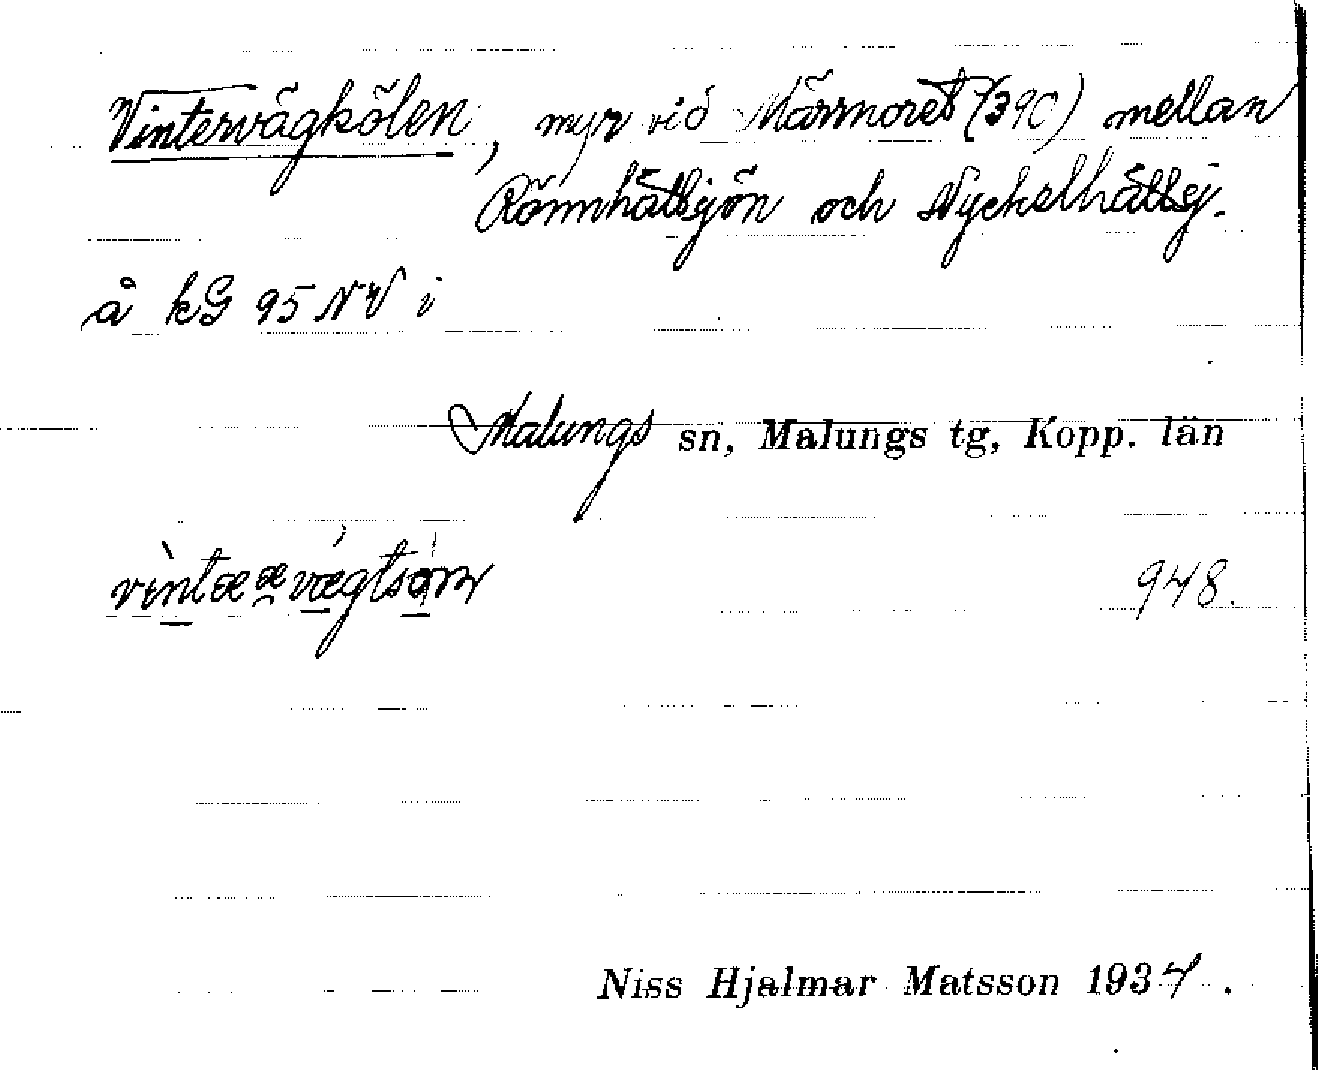 Vintervägkölen, myr vid Märrmoret (390) mellan
Rönnhåtsjön och Nyckelhåtsj.
å kG 95 NV i
Malungs sn, Malungs tg, Kopp. län
948.
Niss Hjalmar Matsson 1934.